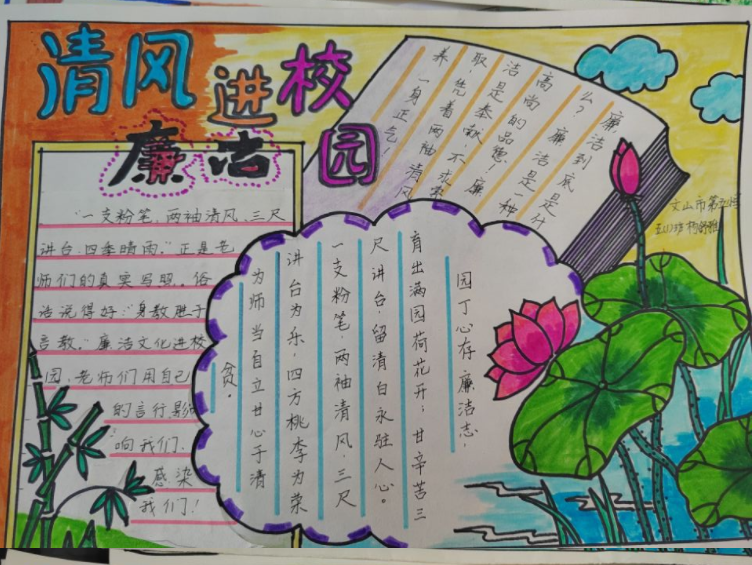 清风进校园
廉洁
"一支粉笔,两袖清风,三尺
讲台,四季晴雨。"正是老
师们的真实写照。俗
话说得好:"身教胜于
言教。"廉洁文化进校
园,老师们用自己
的言行影
响我们、
感染
我们!
廉洁到底是什
么?廉洁是一种
高尚的品德!廉
洁是奉献,不求索
取,凭着两袖清风
养一身正气!
园丁心存廉洁志,
育出满园荷花开;甘辛苦三
尺讲台,留清白永驻人心。
一支粉笔,两袖清风,三尺
讲台为乐,四方桃李为荣
为师当自立甘心于清
贫。
文山市第